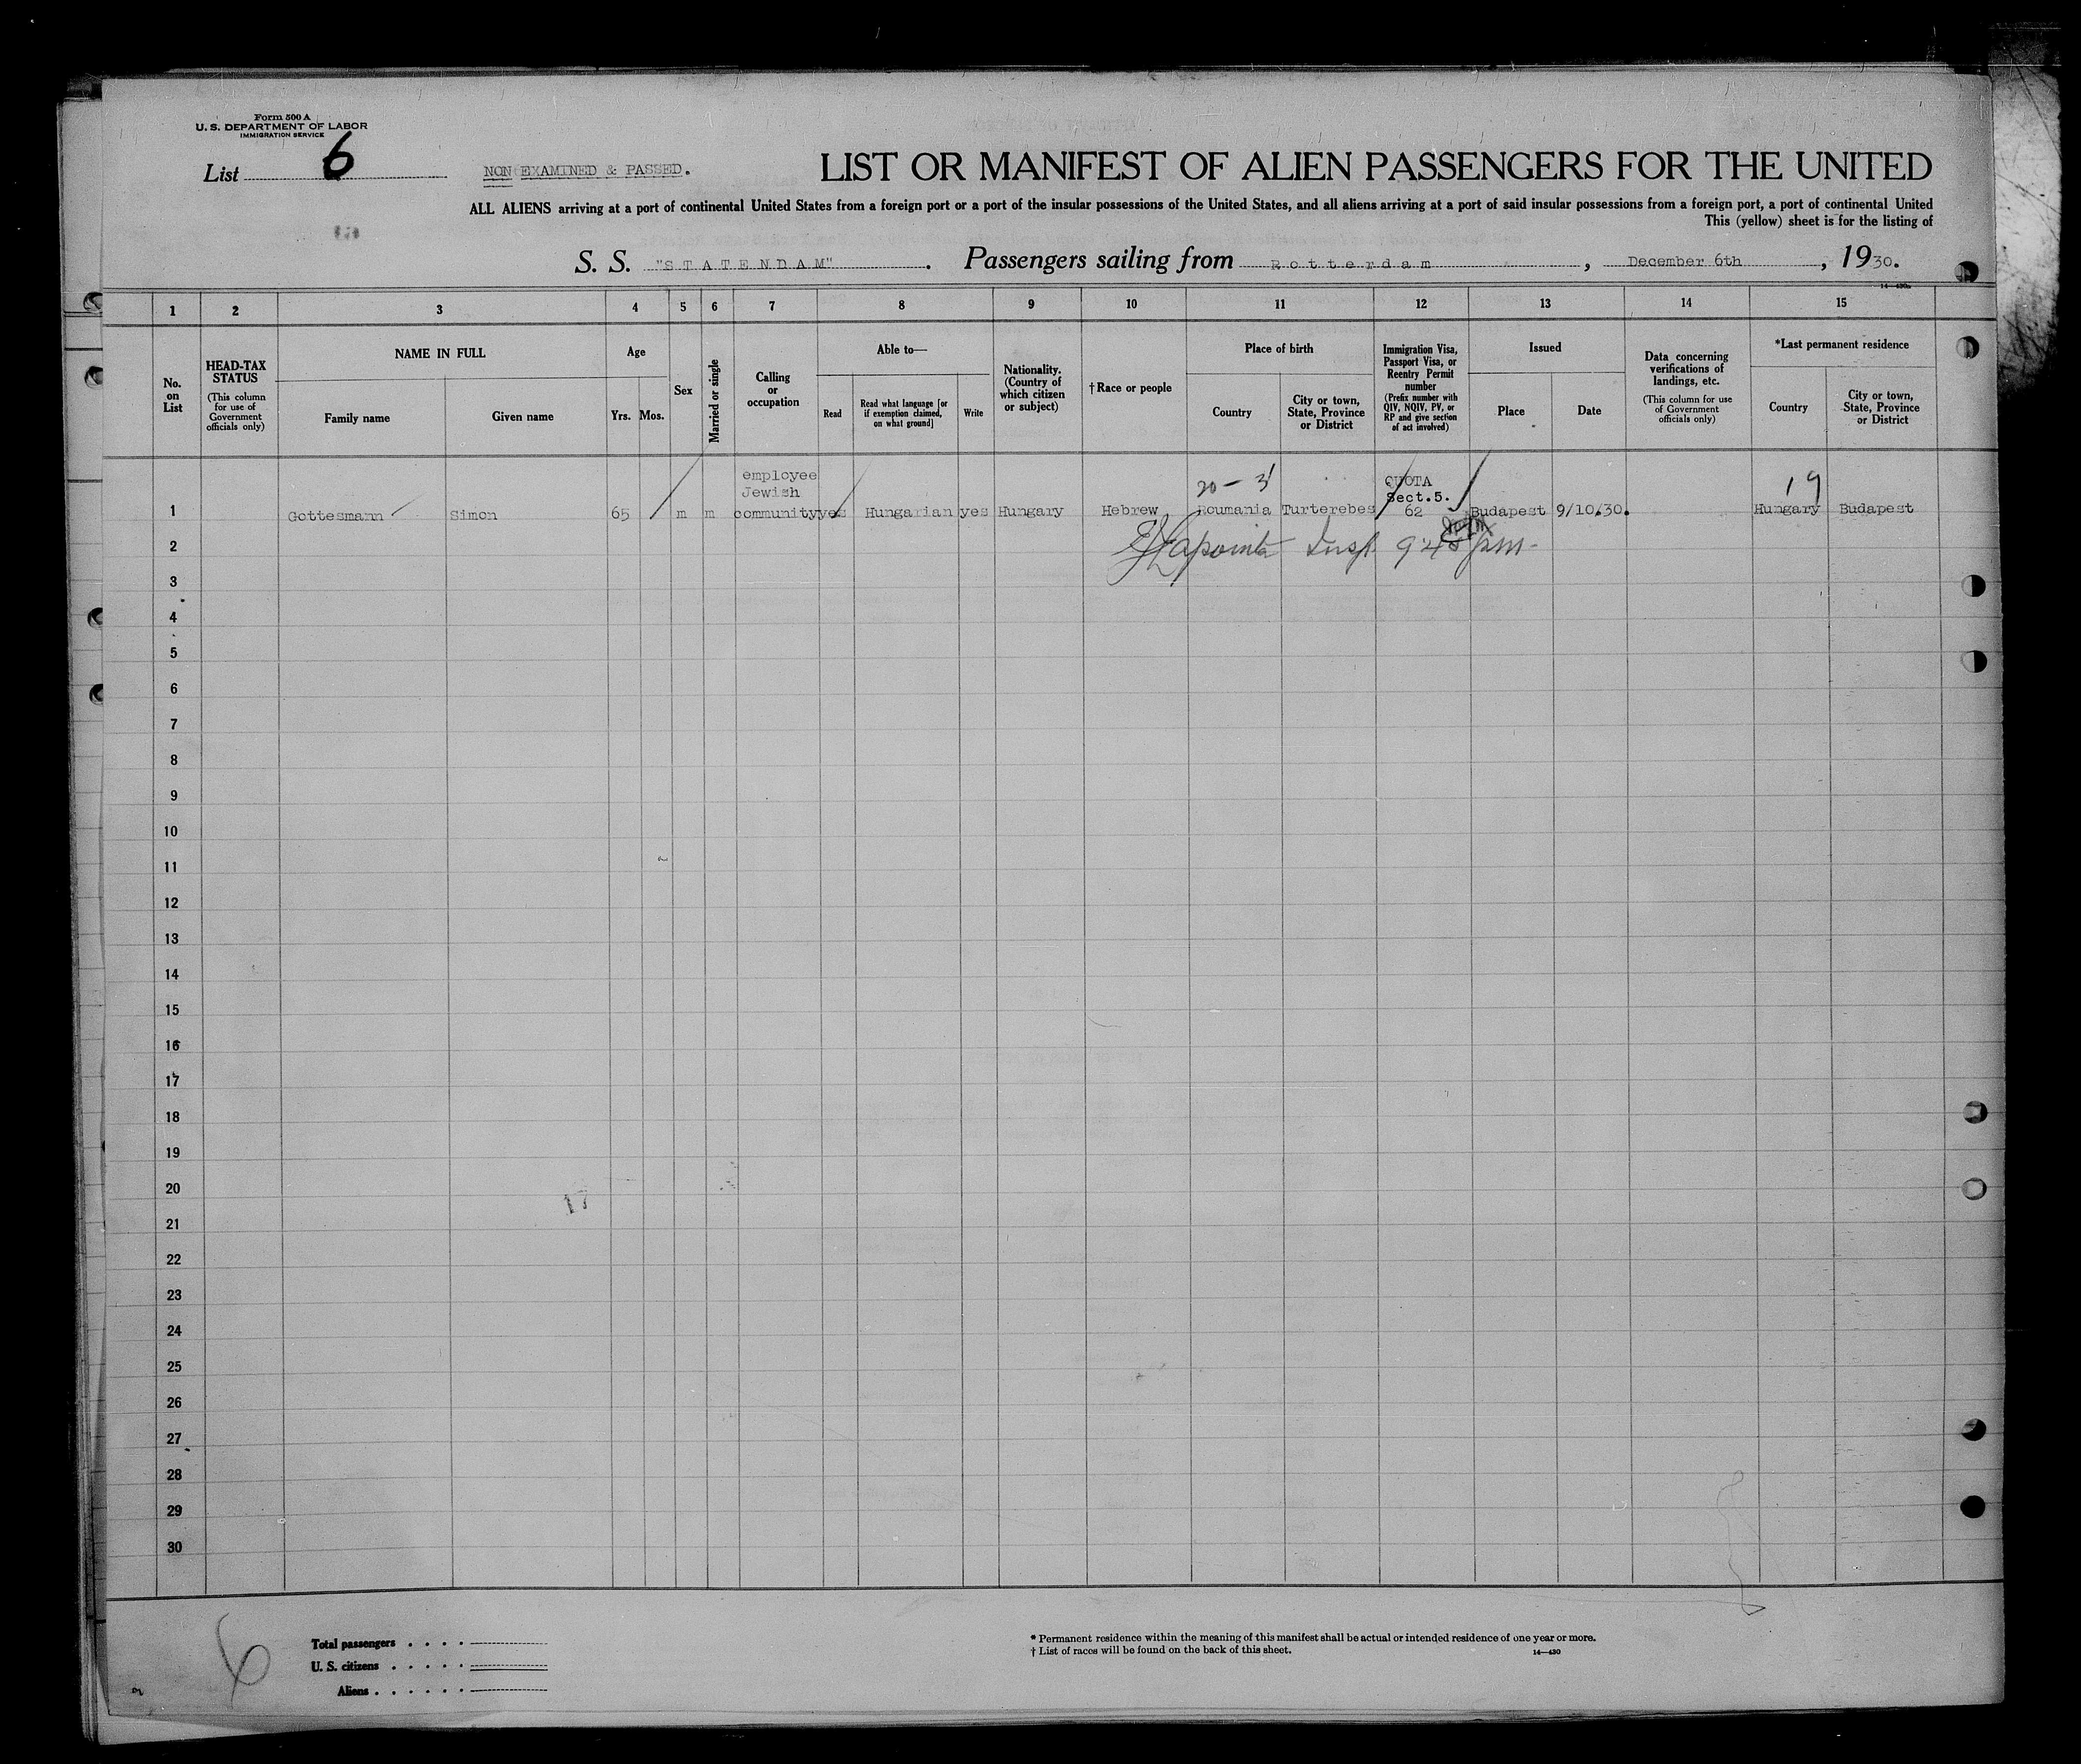 Form 500 A
U. S. DEPARTMENT OF LABOR
IMMIGRATION SERVICE
List 6
NON EXAMINED & PASSED.
LIST OR MANIFEST OF ALIEN PASSENGERS FOR THE UNITED
ALL ALIENS arriving at a port of continental United States from a foreign port or a port of the insular possessions of the United States, and all aliens arriving at a port of said insular possessions from a foreign port, a port of continental United
This (yellow) sheet is for the listing of
S. S. "STATENDAM". Passengers sailing from Rotterdam, December 6th, 1930.
14—430a
1 2 3 4 5 6 7 8 9 10 11 12 13 14 15
No. on List
HEAD-TAX STATUS
(This column for use of Government officials only)
NAME IN FULL
Family name
Given name
Age
Yrs. Mos.
Sex
Married or single
Calling or occupation
Able to—
Read
Read what language [or if exemption claimed, on what ground]
Write
Nationality. (Country of which citizen or subject)
† Race or people
Place of birth
Country
City or town, State, Province or District
Immigration Visa, Passport Visa, or Reentry Permit number
(Prefix number with QIV, NQIV, PV, or RP and give section of act involved)
Issued
Place
Date
Data concerning verifications of landings, etc.
(This column for use of Government officials only)
*Last permanent residence
Country
City or town, State, Province or District
employee
Jewish
20 - 3
QUOTA
Sect.5.
19
1 Gottesmann Simon 65 m m community yes Hungarian yes Hungary Hebrew Roumania Turterebes 62 Budapest 9/10.30. Hungary Budapest
2 Lapointe Insp 9 45 pm
3
4
5
6
7
8
9
10
11
12
13
14
15
16
17
18
19
20
17
21
22
23
24
25
26
27
28
29
30
6
Total passengers
U. S. citizens
Aliens
* Permanent residence within the meaning of this manifest shall be actual or intended residence of one year or more.
† List of races will be found on the back of this sheet.
14—430